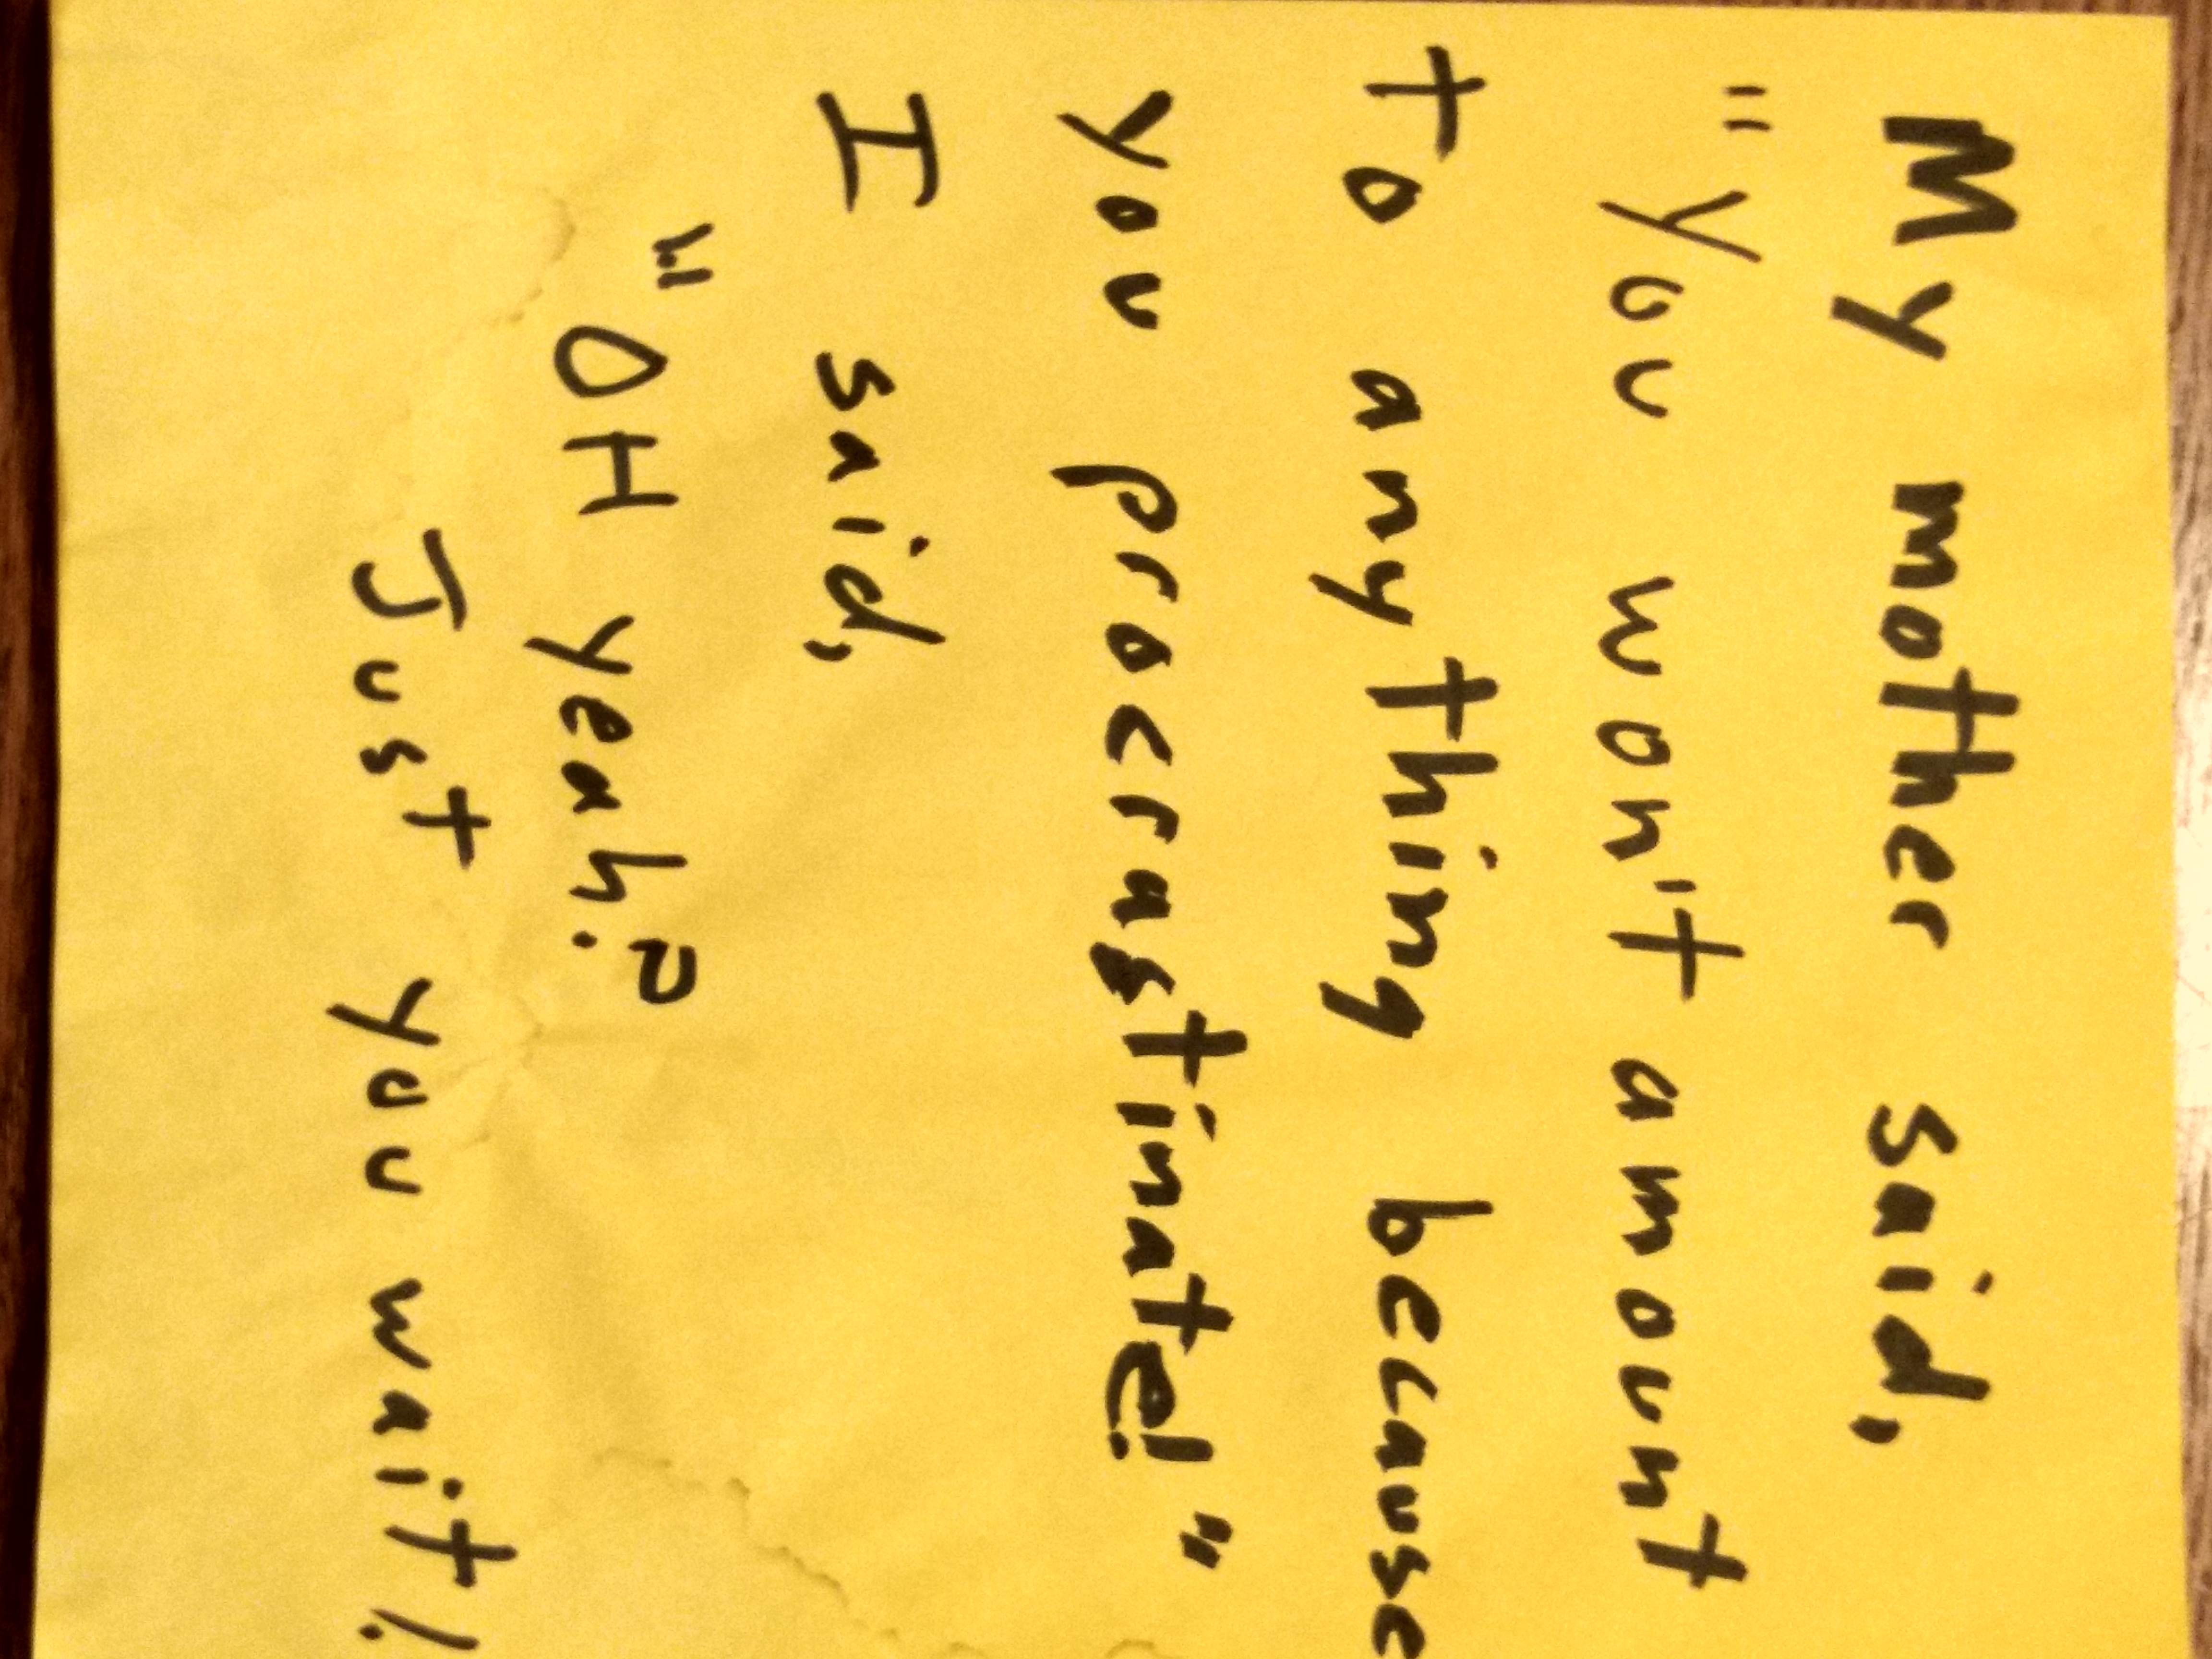 My mother said,
"You won't amount
to anything because
you procrastinate!"
I said,
"OH yeah?
Just you wait!